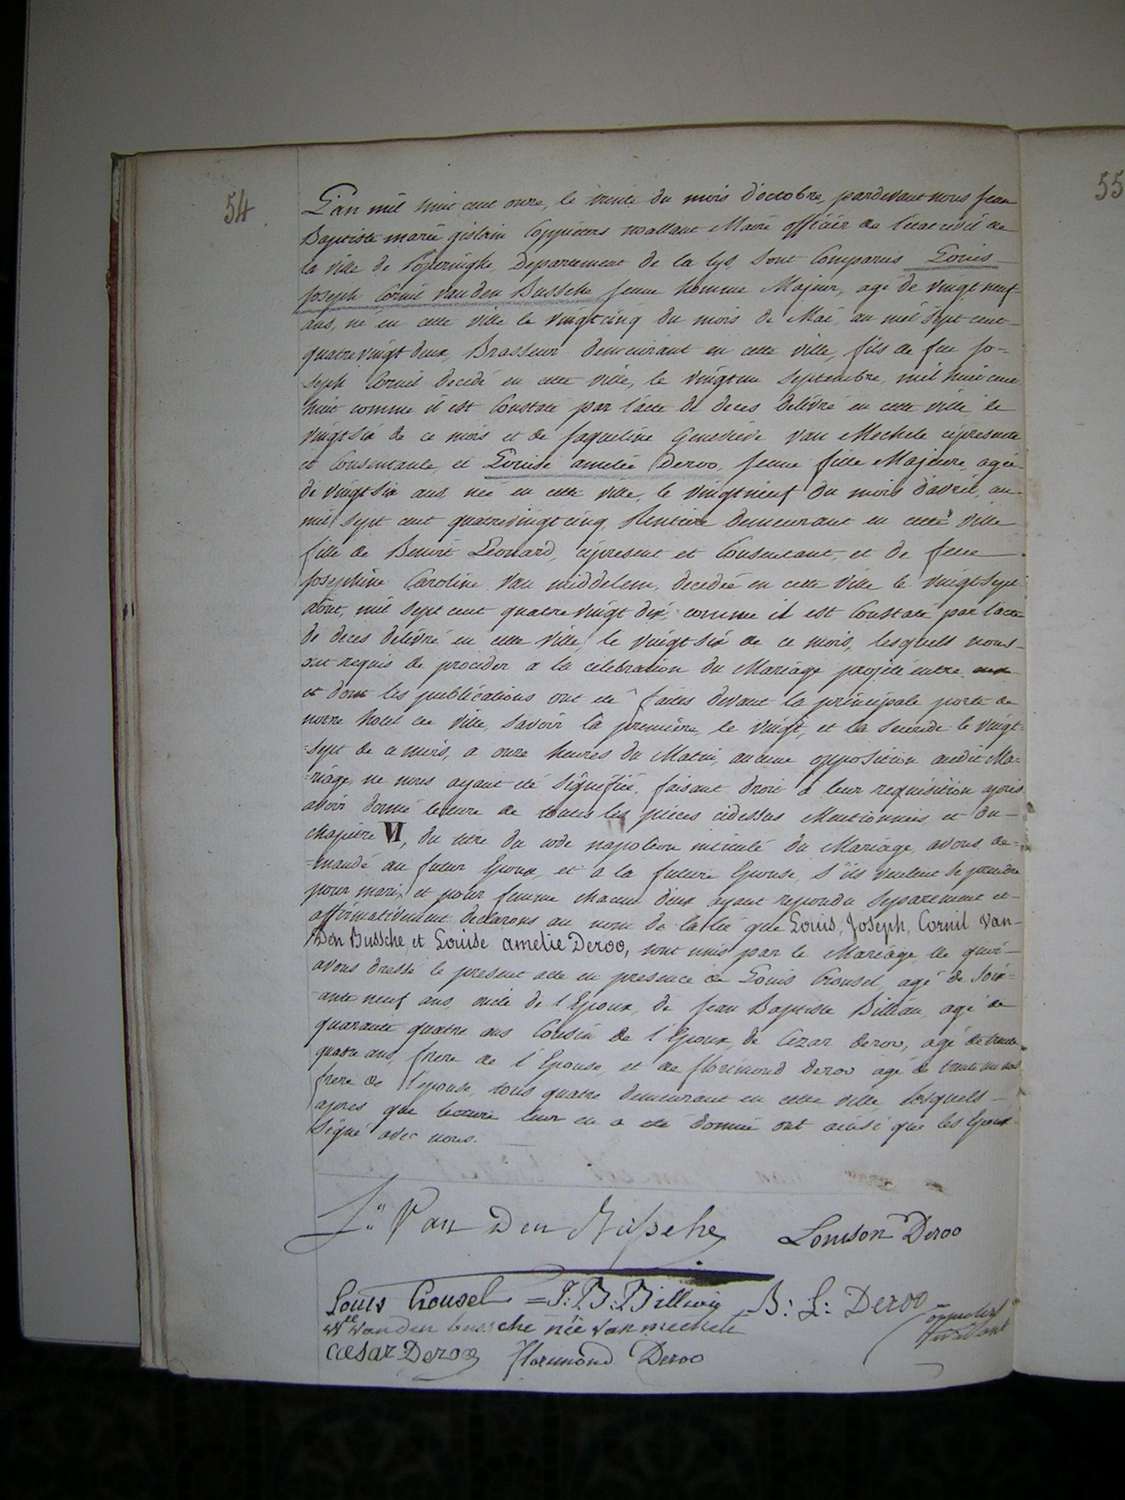 54
55
L'an mil huit cent onze, le trente du mois d'octobre, pardevant nous Jean
Baptiste marie gislain Coppieters wallant Maire officier de l'état civil de
la ville de Poperinghe, Departement de la Lys sont Comparus Louis
Joseph Cornil van den Bussche jeune homme Majeur, agé de vingt neuf
ans, né en cette ville le vingt cinq du mois de Mai au mil sept cent
quatrevingt deux, Brasseur demeurant en cette ville, fils de feu Jo=
seph Cornil decedé en cette ville, le vingt un Septembre, mil huit cent
huit comme il est Constaté par l'acte de deces delivré en cette ville le
vingt six de ce mois et de Jaqueline Genevieve van Mechele cipresente
et Consentante, et Louise amelie Deroo, jeune fille Majeure, agée
de vingt six ans née en cette ville, le vingt neuf du mois d'avril, au
mil sept cent quatrevingt cinq, Rentiere demeurant en cette ville
fille de Benoit Leonard, cipresent et Consentant, et de feue
Josephine Caroline Van middelem, decedée en cette ville le vingt sept
août, mil sept cent quatre vingt dix, comme il est Constaté par l'acte
de deces delivré en cette ville, le vingt six de ce mois, lesquels nous
ont requis de proceder a la celebration du Mariage projeté entre eux
et dont les publications ont été faites devant la principale porte de
notre hotel de ville, Savoir la premiere, le vingt, et la seconde le vingt=
=sept de ce mois, a onze heures du Matin, aucune opposition audit Ma=
=riage, ne nous ayant été Signifiée, faisant droit a leur requisition apres
avoir donné lecture de toutes les pieces cidessus Mentionnées et du
chapitre VI, du titre du code napoleon intitulé du Mariage, avons de=
=mandé au futur Epoux, et a la future Epouse, s'ils veulent se prendre
pour mari, et pour femme chacun d'eux ayant repondu Separement et
affirmativement declarons au nom de la loi que Louis, Joseph, Cornil van
Den Bussche, et Louise amelie Deroo, sont unis par le Mariage, de quoi
avons dressé le present acte en presence de Louis Crousel, agé de Soix=
=ante neuf ans, oncle de l'Epoux, de Jean Baptiste Billiau, agé de
quarante quatre ans Cousin de l'Epoux, de Cezar deroo, agé de trente
quatre ans, frere de l'Epouse, et de florimond Deroo agé de trente un ans
frere de l'epouse, tous quatre demeurant en cette ville lesquels
apres que lecture leur en a été donnée ont ainsi que les Epoux
Signé avec nous.
Van Den Bussche Louison Deroo
Louis Crousel = J: B: Billiau B: L: Deroo
Wee van den bussche née van mechele
Caesar Deroo florimond Deroo